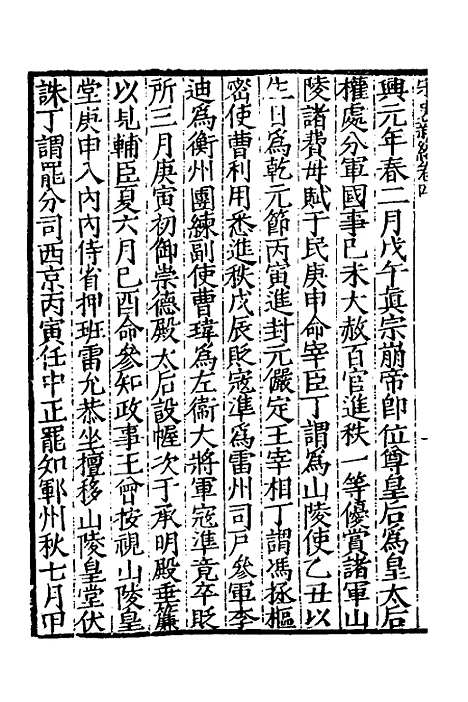 興元年春二月戊午真宗崩帝即位尊皇后爲皇太后
權處分軍國事己未大赦百官進秩一等優賞諸軍山
陵諸費毋賦于民庚申命宰臣丁謂爲山陵使乙丑以
生日爲乾元節丙寅進封元儼定王宰相丁謂馮拯樞
密使曹利用悉進秩戊辰貶寇準爲雷州司戶參軍李
迪爲衡州團練副使曹瑋爲左衞大將軍寇準竟卒貶
所三月庚寅初御崇德殿太后設幄次于承明殿垂簾
以見輔臣夏六月己酉命參知政事王曾按視山陵皇
堂庚申入內內侍省押班雷允恭坐擅移山陵皇堂伏
誅丁謂罷分司西京丙寅任中正罷知鄆州秋七月甲